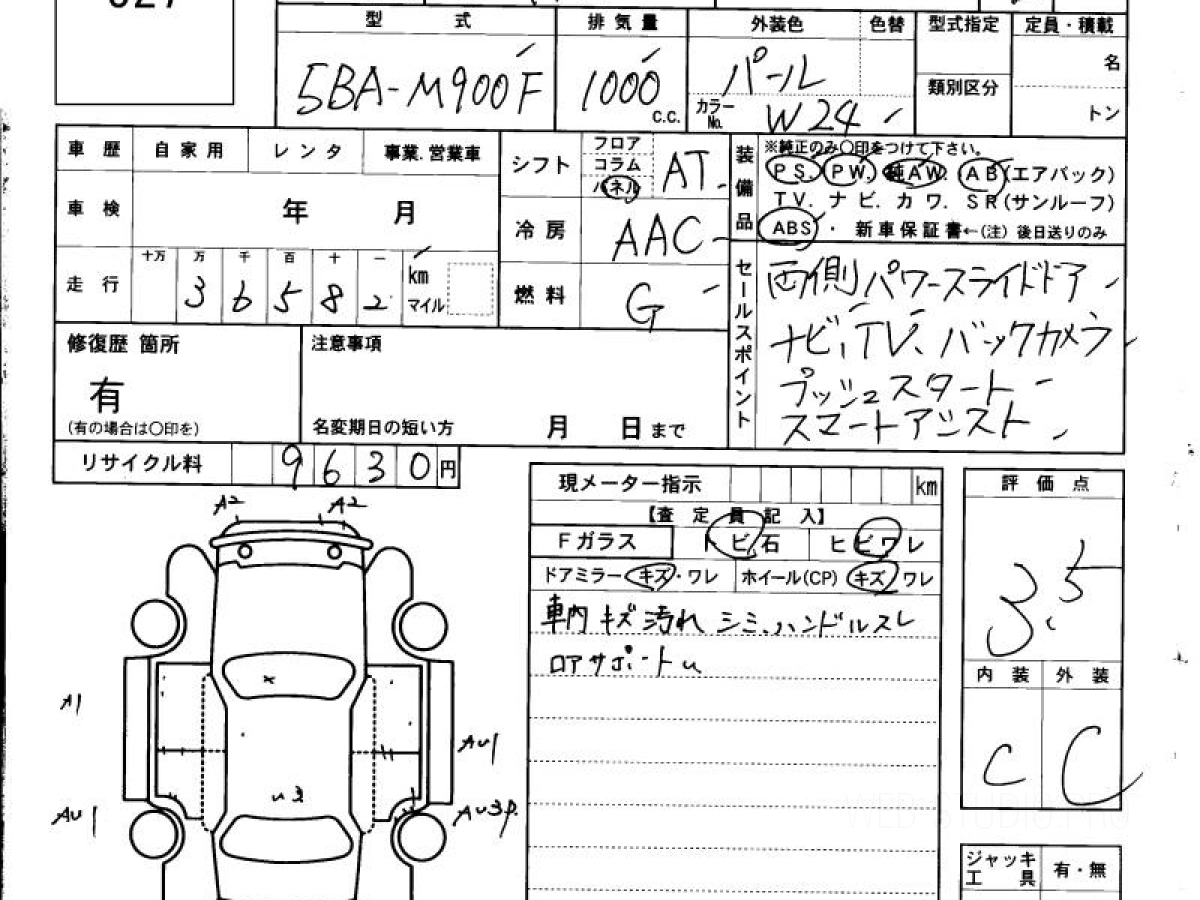 型 式 排 気 量 外装色 色替 型式指定 定員・積載
5BA-M900F 1000 c.c. パール 名
カラーNo. W24 類別区分 トン
車 歴 自 家 用 レ ン タ 事業.営業車
車 検 年 月
走 行 十万 万 千 百 十 一 km マイル
3 6 5 8 2
シフト フロア コラム パネル AT
冷 房 AAC
燃 料 G
装備品 ※純正のみ〇印をつけて下さい。
PS. PW. 純AW. AB(エアバック)
TV. ナ ビ. カ ワ. SR(サンルーフ)
ABS ・ 新車保証書←(注) 後日送りのみ
セールスポイント
両側パワースライドドア
ナビ、TV、バックカメラ
プッシュスタート
スマートアシスト
修復歴 箇所
有
(有の場合は〇印を)
注意事項
名変期日の短い方 月 日 まで
リサイクル料 9 6 3 0 円
現メーター指示 km
【査 定 員 記 入】
Fガラス トビ石 ヒビワレ
ドアミラー キズ・ワレ ホイール(CP) キズ ワレ
車内 キズ 汚れ シミ、ハンドルスレ
ロアサポートU
評 価 点
3.5
内 装 外 装
C C
A2 A2
A1
AU1
AU1 AU3P
U3
WEB-STUDIO.PRO
ジャッキ 工 具 有・無